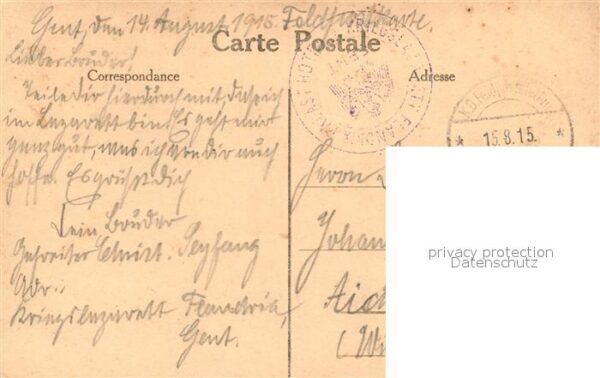 Gent, den 14. August 1915. Feldpostkarte.
Carte Postale
Correspondance
Adresse
Lieber Bruder!
Teile Dir hierdurch mit, daß ich
im Lazarett bin. Es geht mir
ganz gut, was ich von Dir auch
hoffe. Es grüßt Dich
Dein Bruder
Gefreiter Christ. Seyfang
Adr.:
Kriegslazarett Flandria,
Gent.
* 15.8.15. *
Herrn
Johan
Aich
(Wü
privacy protection
Datenschutz